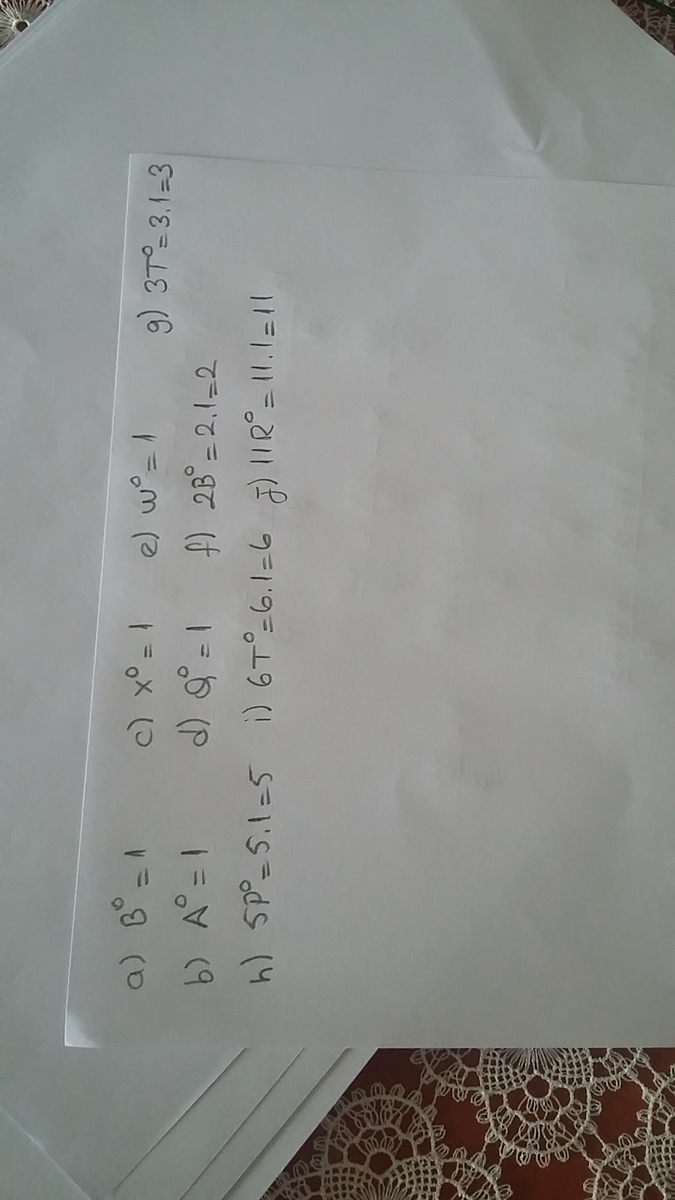 a) B⁰ = 1 c) x⁰ = 1 e) w⁰ = 1 g) 3T⁰ = 3.1 = 3
b) A⁰ = 1 d) Q⁰ = 1 f) 2B⁰ = 2.1 = 2
h) 5P⁰ = 5.1 = 5 i) 6T⁰ = 6.1 = 6 j) 11R⁰ = 11.1 = 11